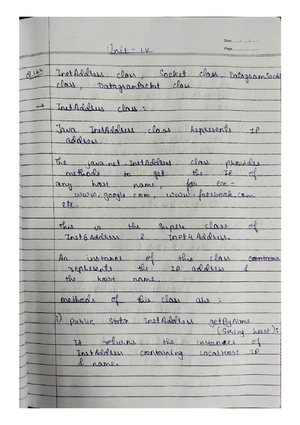 Date
Page
Unit - IV
InetAddress class, Socket class, DatagramSocket
class, DatagramPacket class.
→ InetAddress class :
Java InetAddress class represents IP
address.
The java.net.InetAddress class provides
methods to get the IP of
any host name, for ex-
www.google.com, www.facebook.com
etc.
This is the super class of
Inet6Address & Inet4Address.
An instance of this class
represents the IP address &
the host name.
methods of this class are :
i) Public Static InetAddress getByName
(String host):
It returns the instance of
InetAddress containing LocalHost IP
& name.